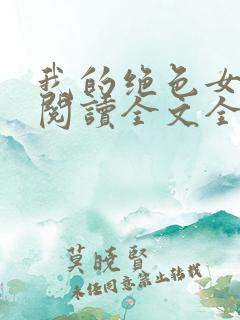 我的绝色女
阅讀全文全
莫晓賢
未经同意禁止转载